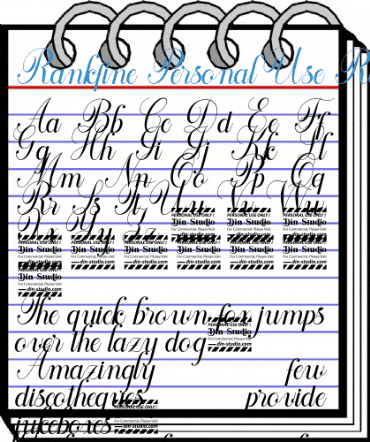 Rankfine Personal Use R
Aa Bb Cc Dd Ee Ff
Gg Hh Ii Jj Kk Ll
Mm Nn Oo Pp Qq
Rr Ss Tt Uu Vv Ww
Xx Yy Zz
PERSONAL USE ONLY!
Din Studio
For Commercial, Please Visit
din-studio.com
The quick brown fox jumps
over the lazy dog
Amazingly few
discotheques provide
jukeboxes